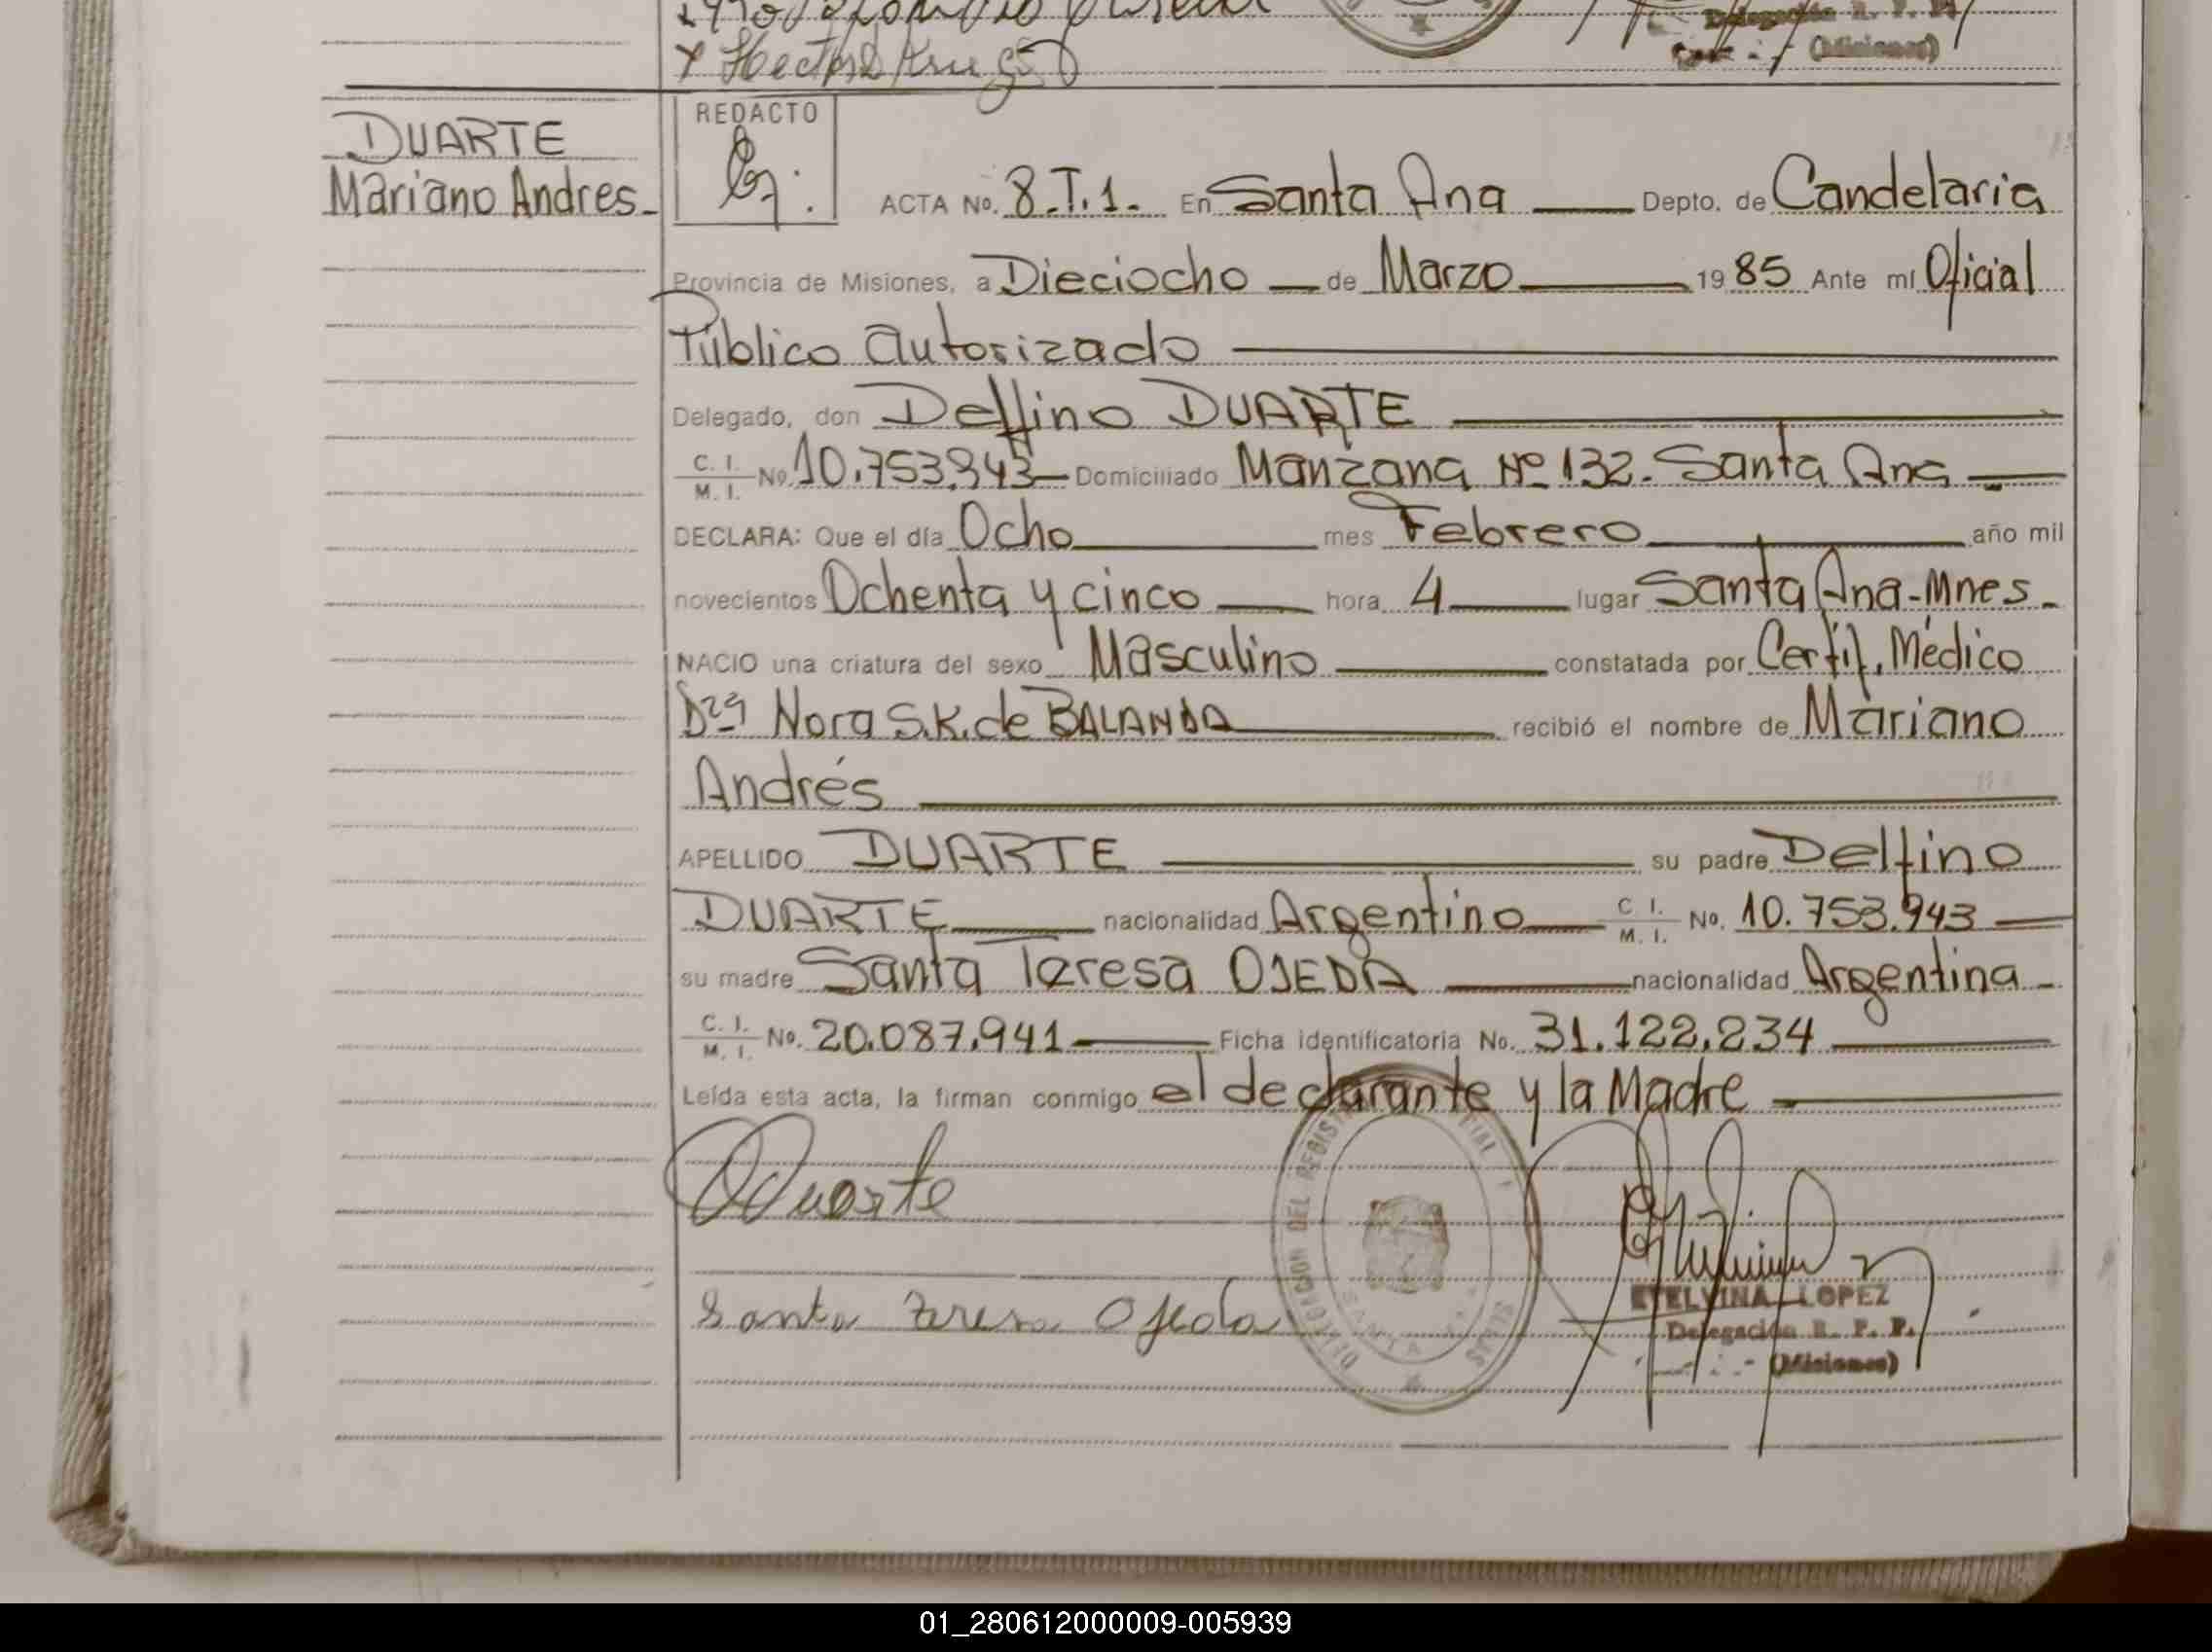 Hector Krug
Delegación R. P. P.
(Misiones)
DUARTE
Mariano Andres-
REDACTO
ACTA No. 8.T.1. En Santa Ana Depto. de Candelaria
Provincia de Misiones, a Dieciocho de Marzo 1985 Ante mí Oficial
Público autorizado
Delegado, don Delfino DUARTE
C. I. M. I. No. 10.753.943 Domiciliado Manzana Nº 132. Santa Ana
DECLARA: Que el día Ocho mes Febrero año mil
novecientos Ochenta y cinco hora 4 lugar Santa Ana-Mnes.
NACIO una criatura del sexo Masculino constatada por Certif. Médico
Dra Nora S.K. de BALANDA recibió el nombre de Mariano
Andrés
APELLIDO DUARTE su padre Delfino
DUARTE nacionalidad Argentino C. I. M. I. No. 10.753.943
su madre Santa Teresa OJEDA nacionalidad Argentina -
C. I. M. I. No. 20.087.941 Ficha identificatoria No. 31.122.234
Leída esta acta, la firman conmigo el declarante y la Madre
DUarte
DELEGACION DEL REGIST
SANTA
Santa Teresa Ojeda
ETELVINA LOPEZ
Delegación R. P. P.
(Misiones)
01_280612000009-005939